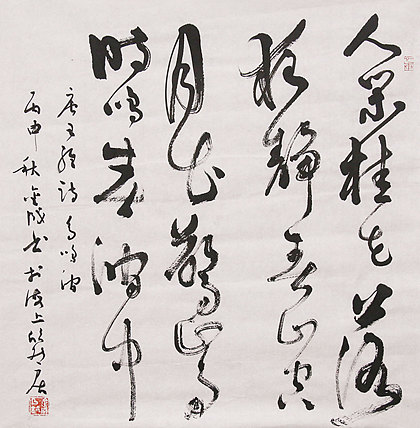 人閒桂花落
夜靜春山空
月出驚山鳥
時鳴春澗中
唐王維詩鳥鳴澗
丙申秋金城書於海上居